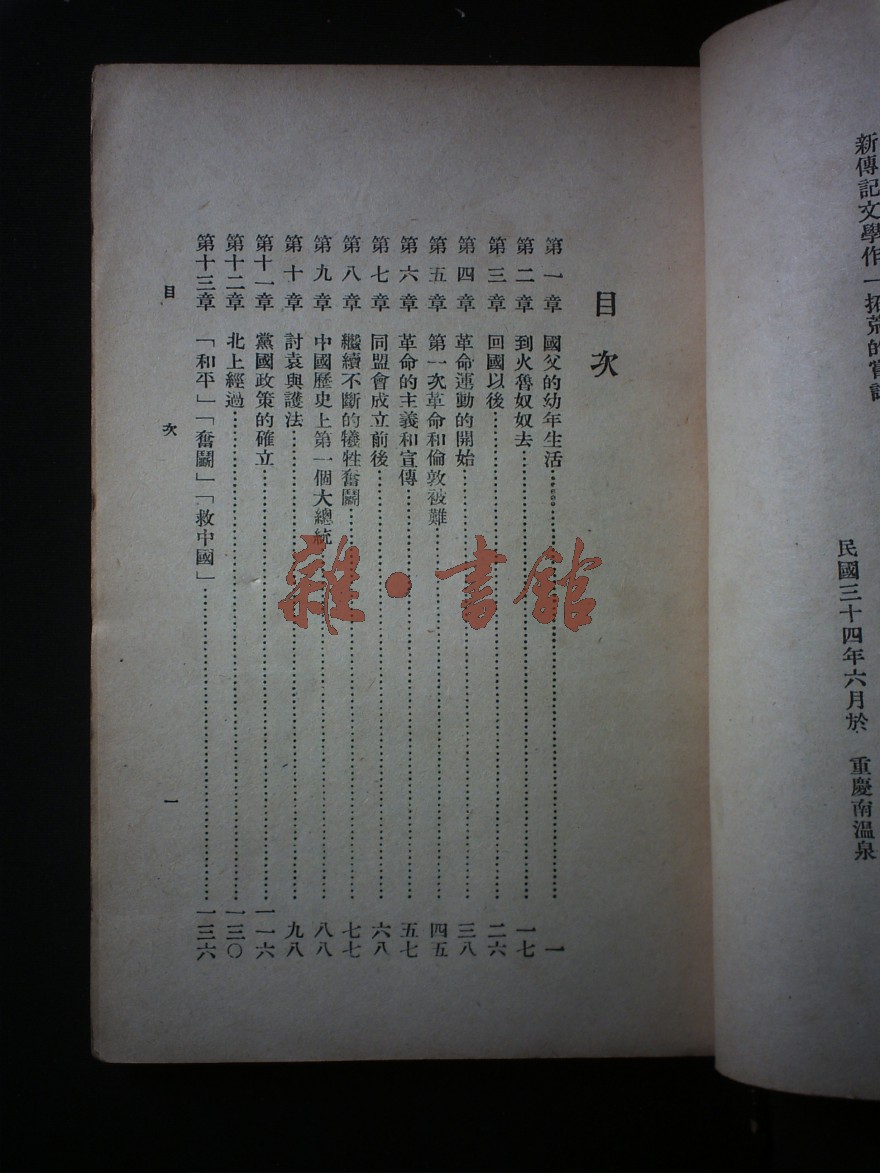 新傳記文學作一拓荒的嘗試
民國三十四年六月於　重慶南溫泉
目次
第一章　國父的幼年生活……一
第二章　到火魯奴奴去……一七
第三章　回國以後……二六
第四章　革命運動的開始……三八
第五章　第一次革命和倫敦被難……四五
第六章　革命的主義和宣傳……五七
第七章　同盟會成立前後……六八
第八章　繼續不斷的犧牲奮鬭……七七
第九章　中國歷史上第一個大總統……八八
第十章　討袁與護法……九八
第十一章　黨國政策的確立……一一六
第十二章　北上經過……一三〇
第十三章　「和平」「奮鬭」「救中國」……一三六
目次　一
雜·書館